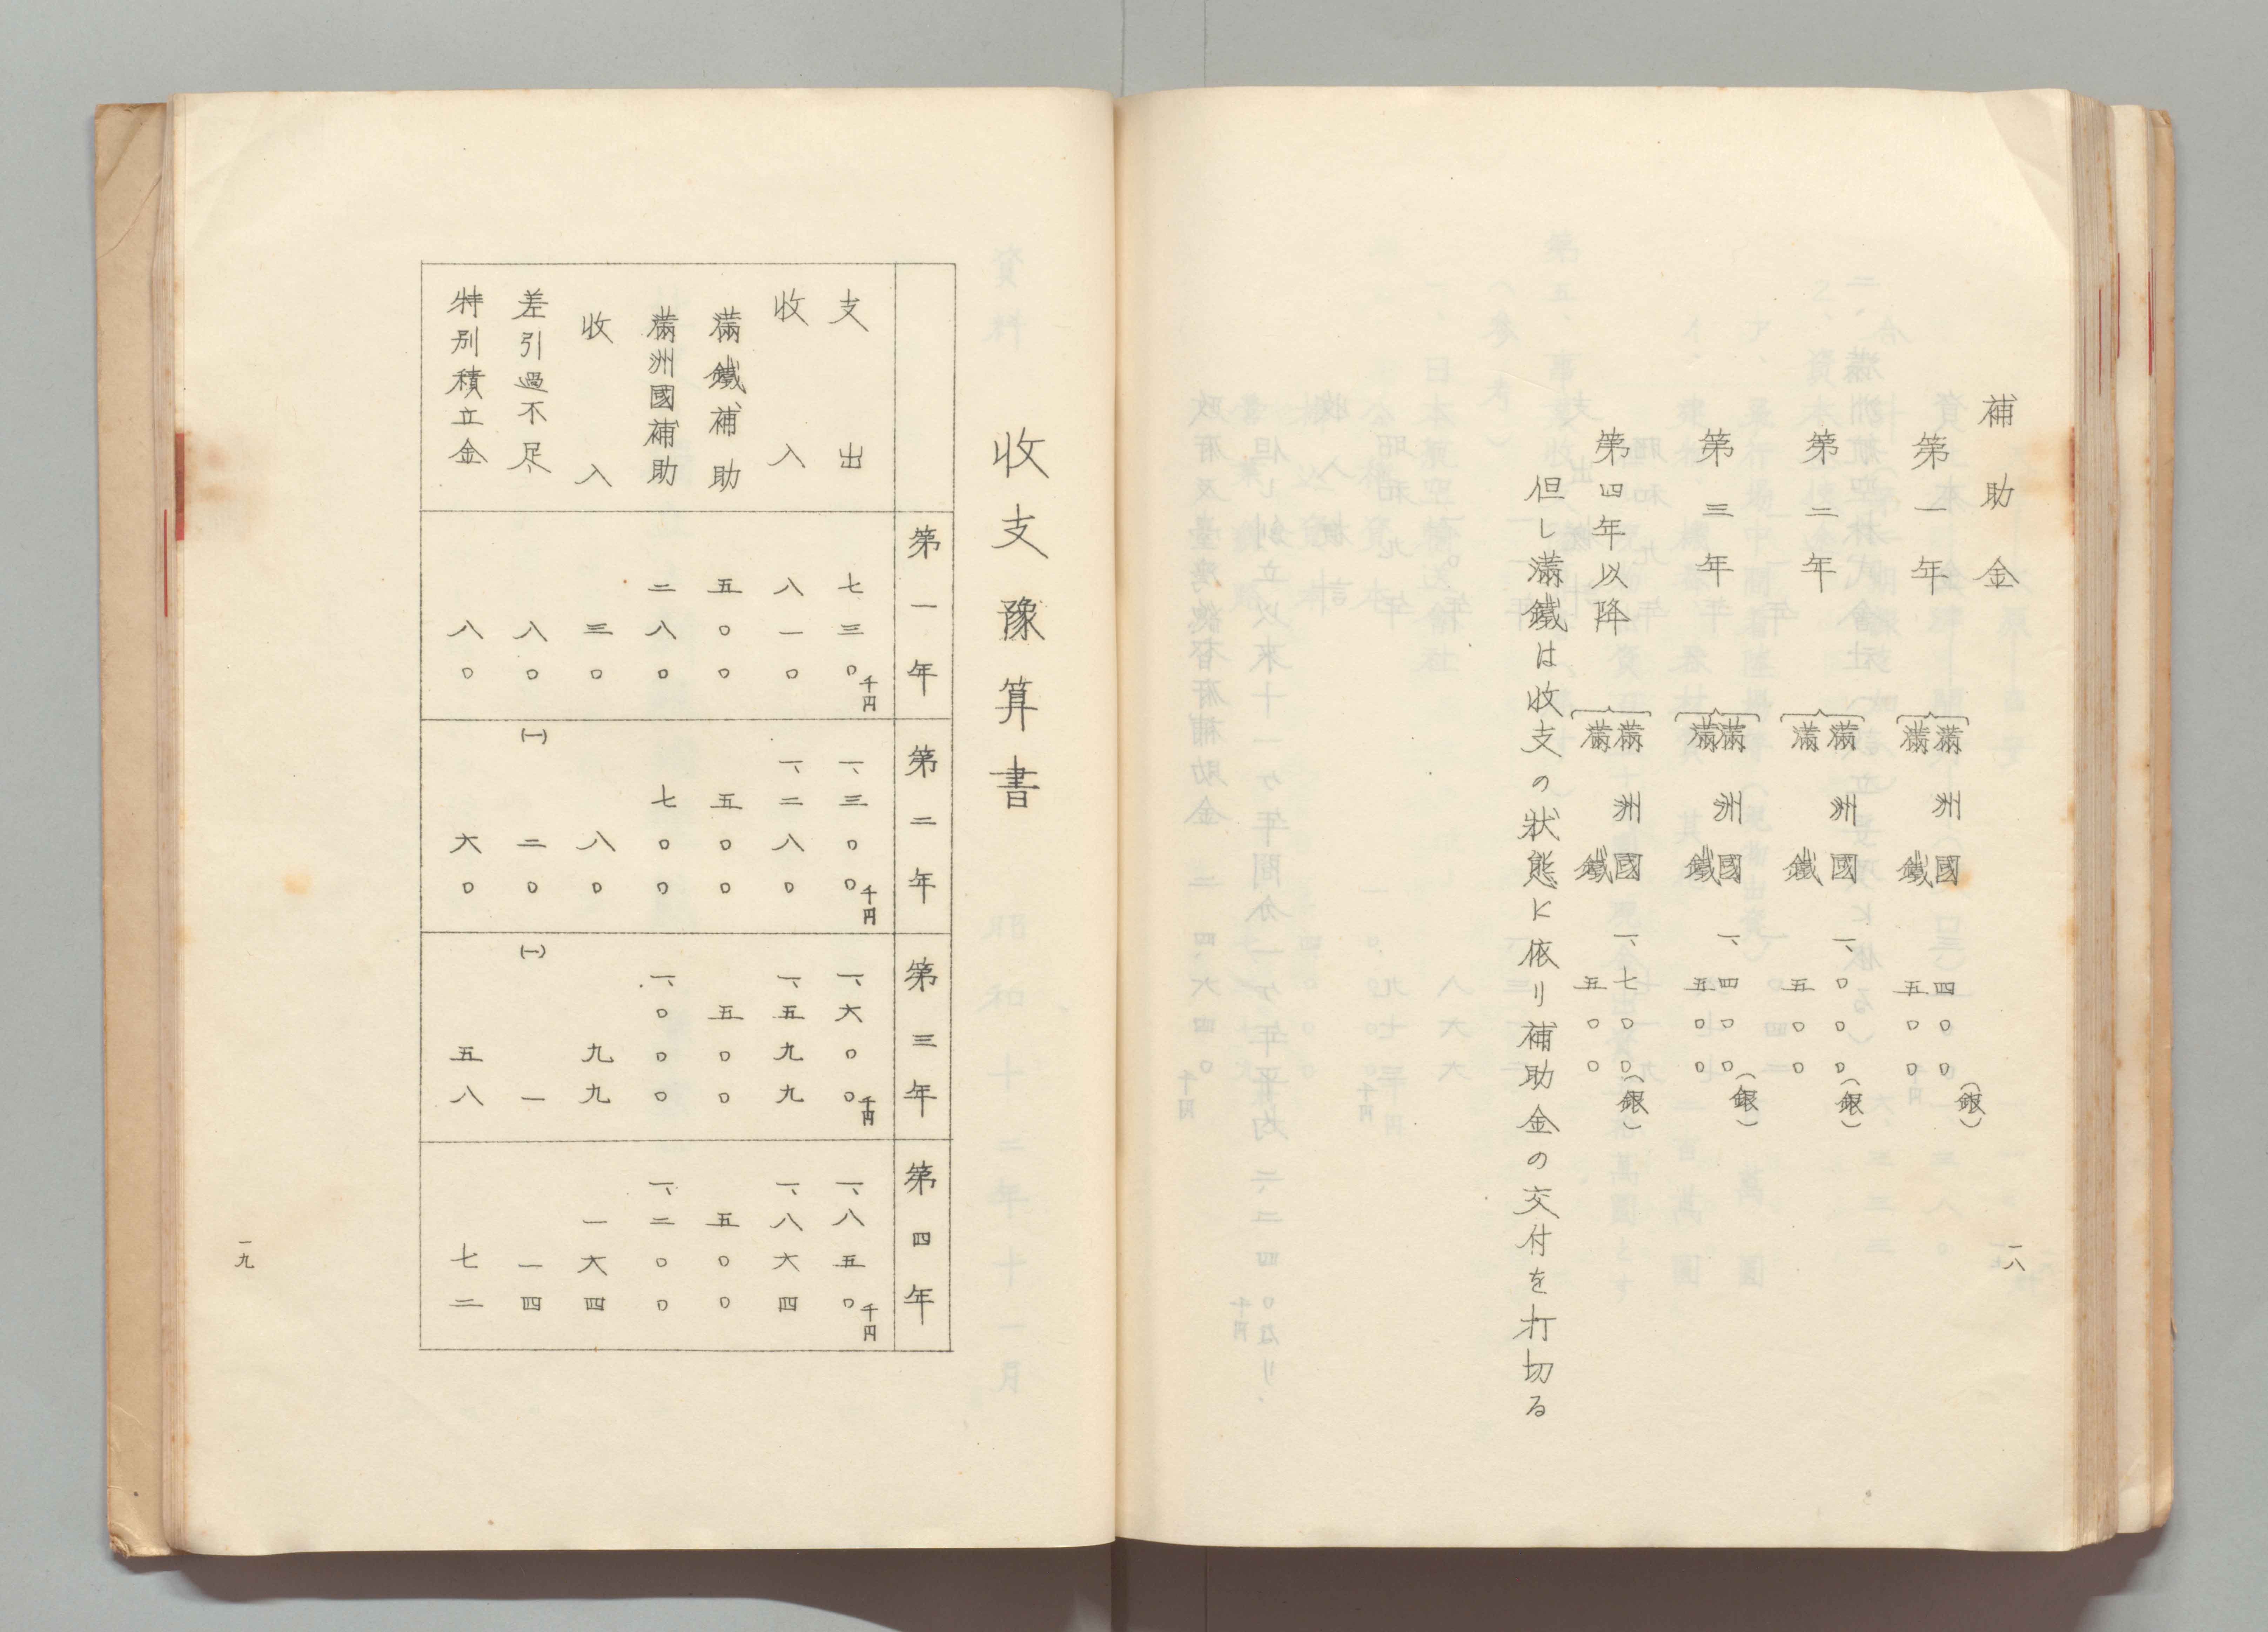 補助金
第一年 滿洲國 四〇〇(銀)
滿鐵 五〇〇
第二年 滿洲國 一、〇〇〇(銀)
滿鐵 五〇〇
第三年 滿洲國 一、四〇〇(銀)
滿鐵 五〇〇
第四年以降 滿洲國 一、七〇〇(銀)
滿鐵 五〇〇
但し滿鐵は收支の狀態に依り補助金の交付を打切る
一八
收支豫算書
第一年 第二年 第三年 第四年
支出 七三〇千円 一、三〇〇千円 一、六〇〇千円 一、八五〇千円
收入 八一〇 一、二八〇 一、五九九 一、八六四
滿鐵補助 五〇〇 五〇〇 五〇〇 五〇〇
滿洲國補助 二八〇 七〇〇 一、〇〇〇 一、二〇〇
收入 三〇 八〇 九九 一六四
差引過不足 八〇 (一)二〇 (一)一 一四
特別積立金 八〇 六〇 五八 七二
一九